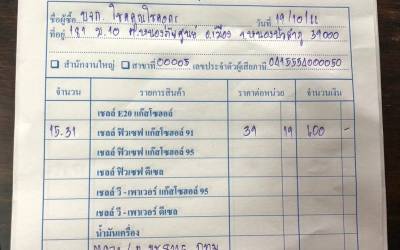 ชื่อผู้ซื้อ บจก. โชคคูณโชคถาวร วันที่ 19/10/66
ที่อยู่ 181 ม.10 ต.หนองภัยศูนย์ อ.เมือง จ.หนองบัวลำภู 39000
สำนักงานใหญ่ สาขาที่ 00003 เลขประจำตัวผู้เสียภาษี
จำนวน รายการสินค้า ราคาต่อหน่วย จำนวนเงิน
เชลล์ E20 แก๊สโซฮอล์
15.31 เชลล์ ฟิวเซฟ แก๊สโซฮอล์ 91 39 19 600 -
เชลล์ ฟิวเซฟ แก๊สโซฮอล์ 95
เชลล์ ฟิวเซฟ ดีเซล
เชลล์ วี - เพาเวอร์ แก๊สโซฮอล์ 95
เชลล์ วี - เพาเวอร์ ดีเซล
น้ำมันเครื่อง